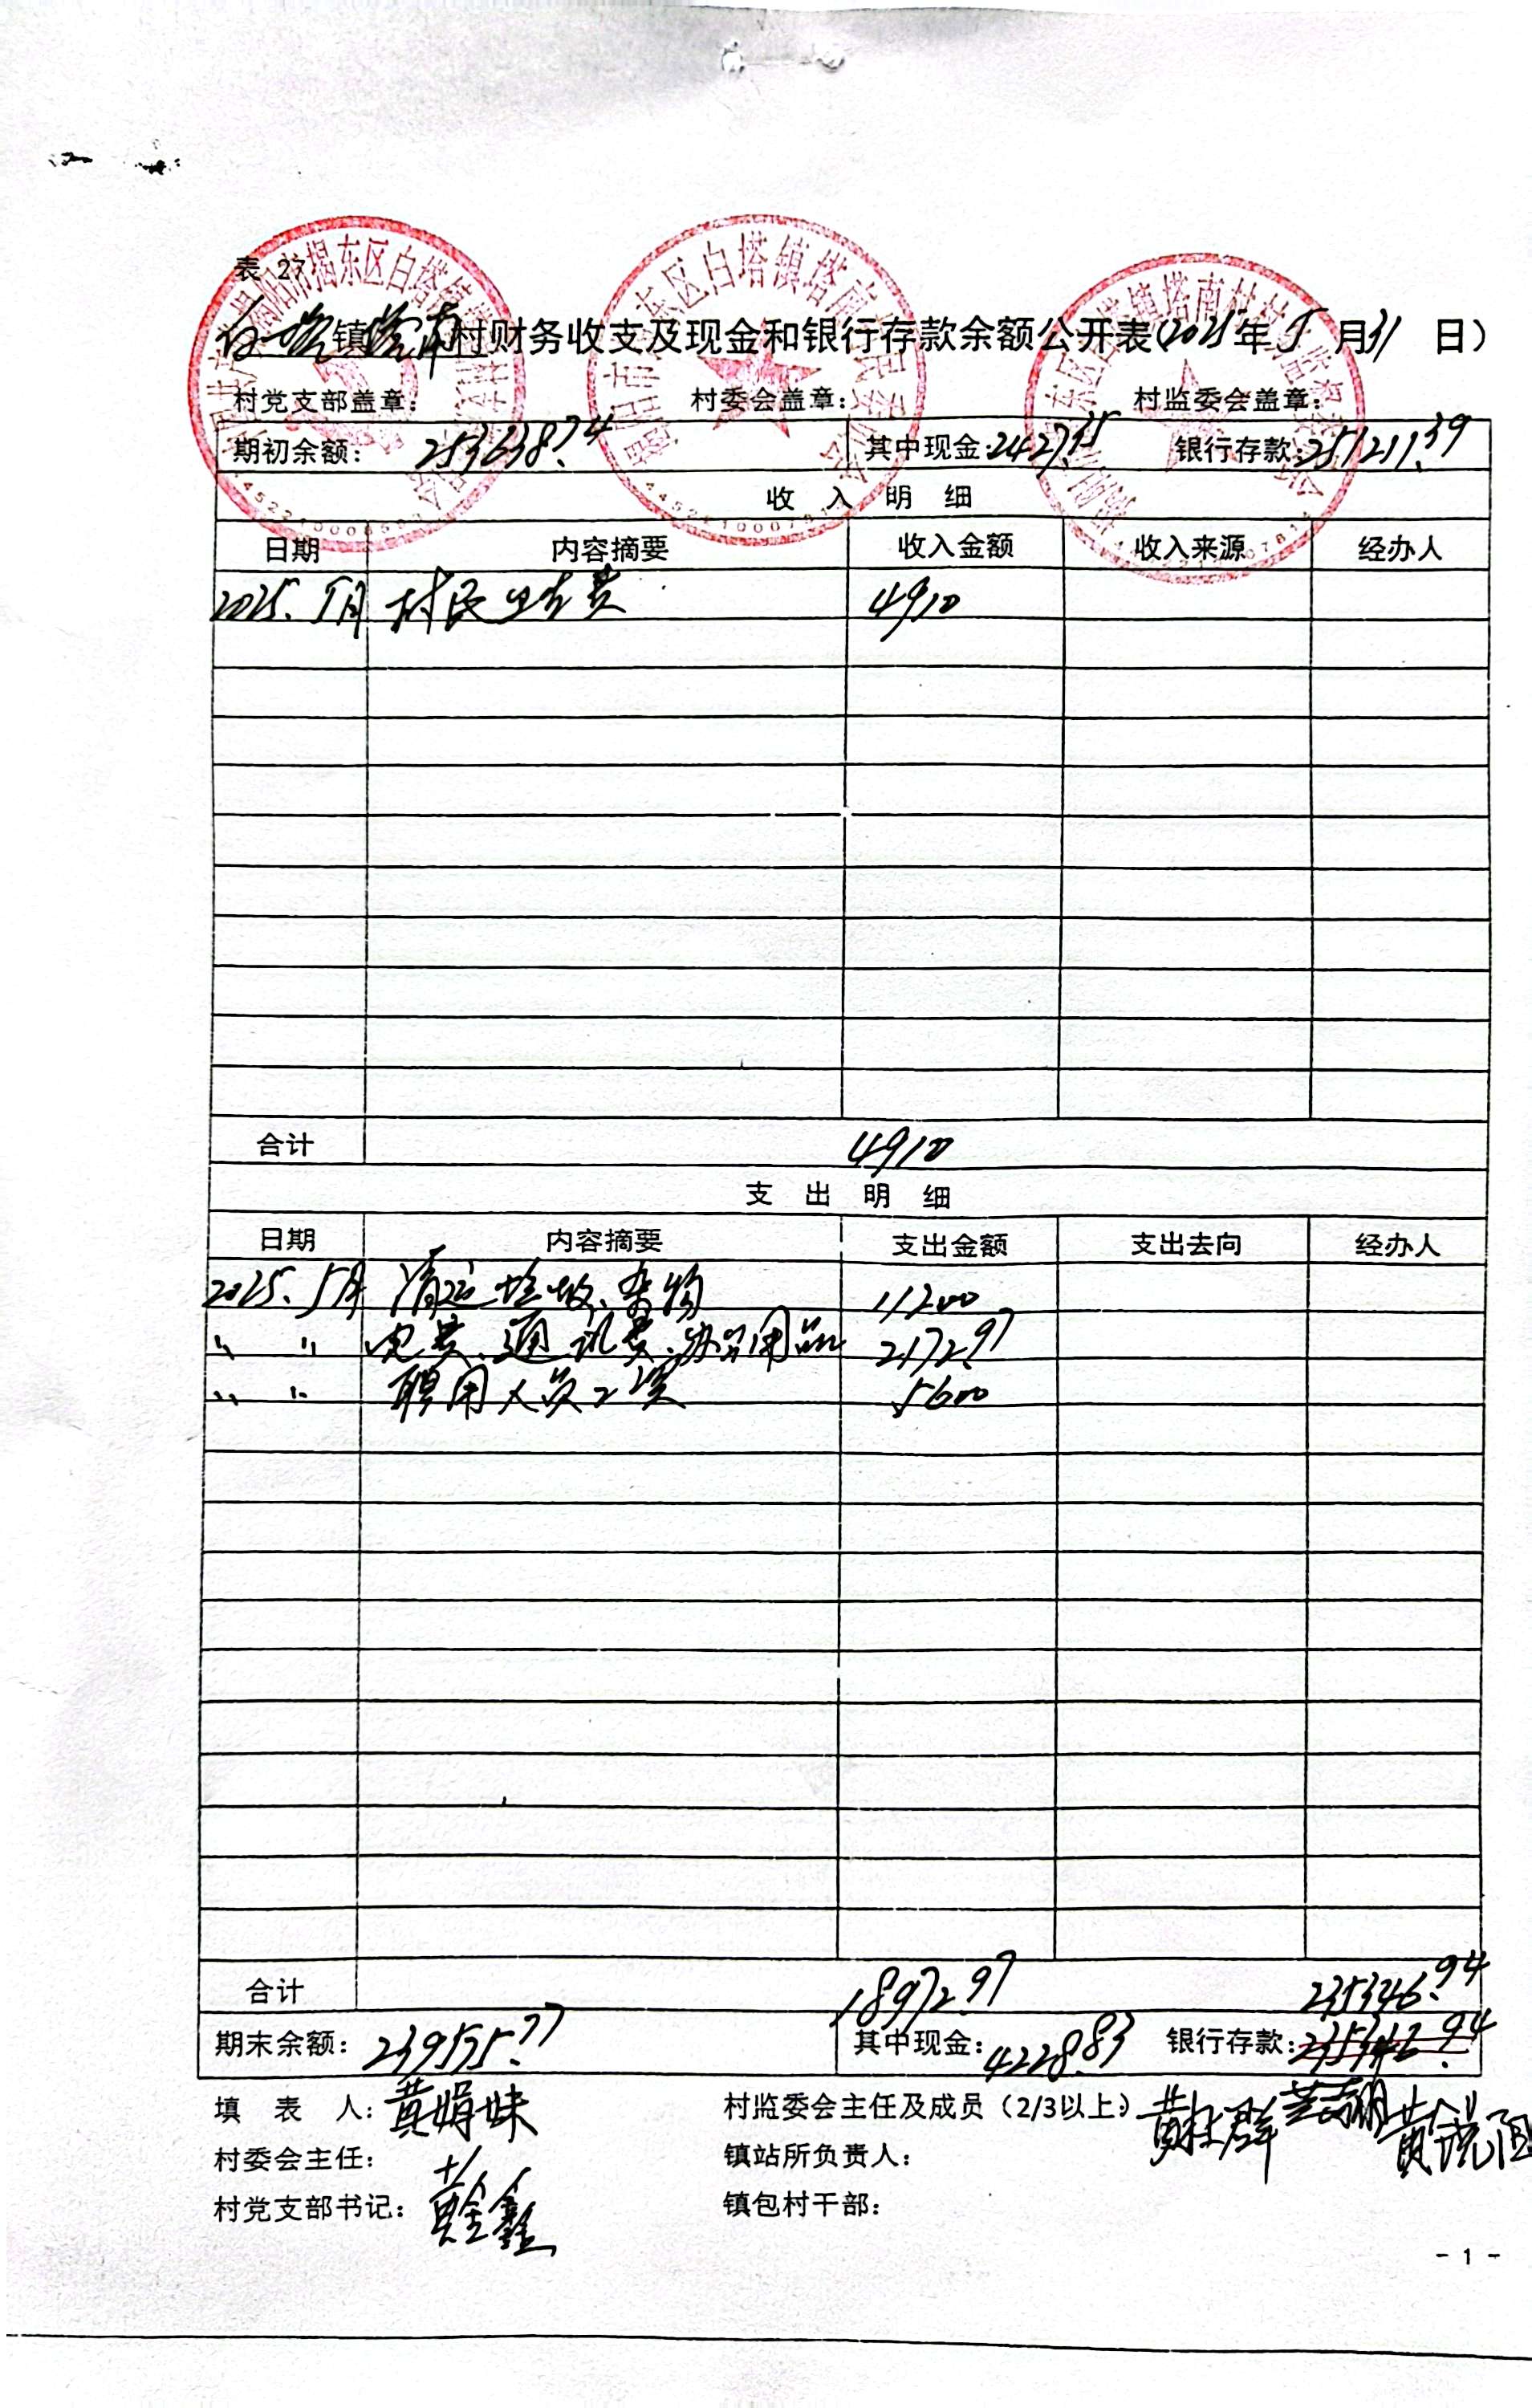 表 27
白塔镇塔南村财务收支及现金和银行存款余额公开表(2025年5月31日)
村党支部盖章: 村委会盖章: 村监委会盖章:
期初余额: 253638.74 其中现金:2427.35 银行存款:251211.39
收 入 明 细
日期 内容摘要 收入金额 收入来源 经办人
2025.5月 村民卫生费 4910
合计 4910
支 出 明 细
日期 内容摘要 支出金额 支出去向 经办人
2025.5月 清运垃圾、杂物 11200
〃 〃 电费、通讯费、办公用品 2172.97
〃 〃 聘用人员工资 5600
合计 18972.97 235346.94
期末余额: 239575.77 其中现金: 4228.83 银行存款:
填 表 人: 黄娟妹 村监委会主任及成员（2/3以上） 黄 群 黄 黄锐
村委会主任: 镇站所负责人:
村党支部书记: 黄金鑫 镇包村干部:
- 1 -